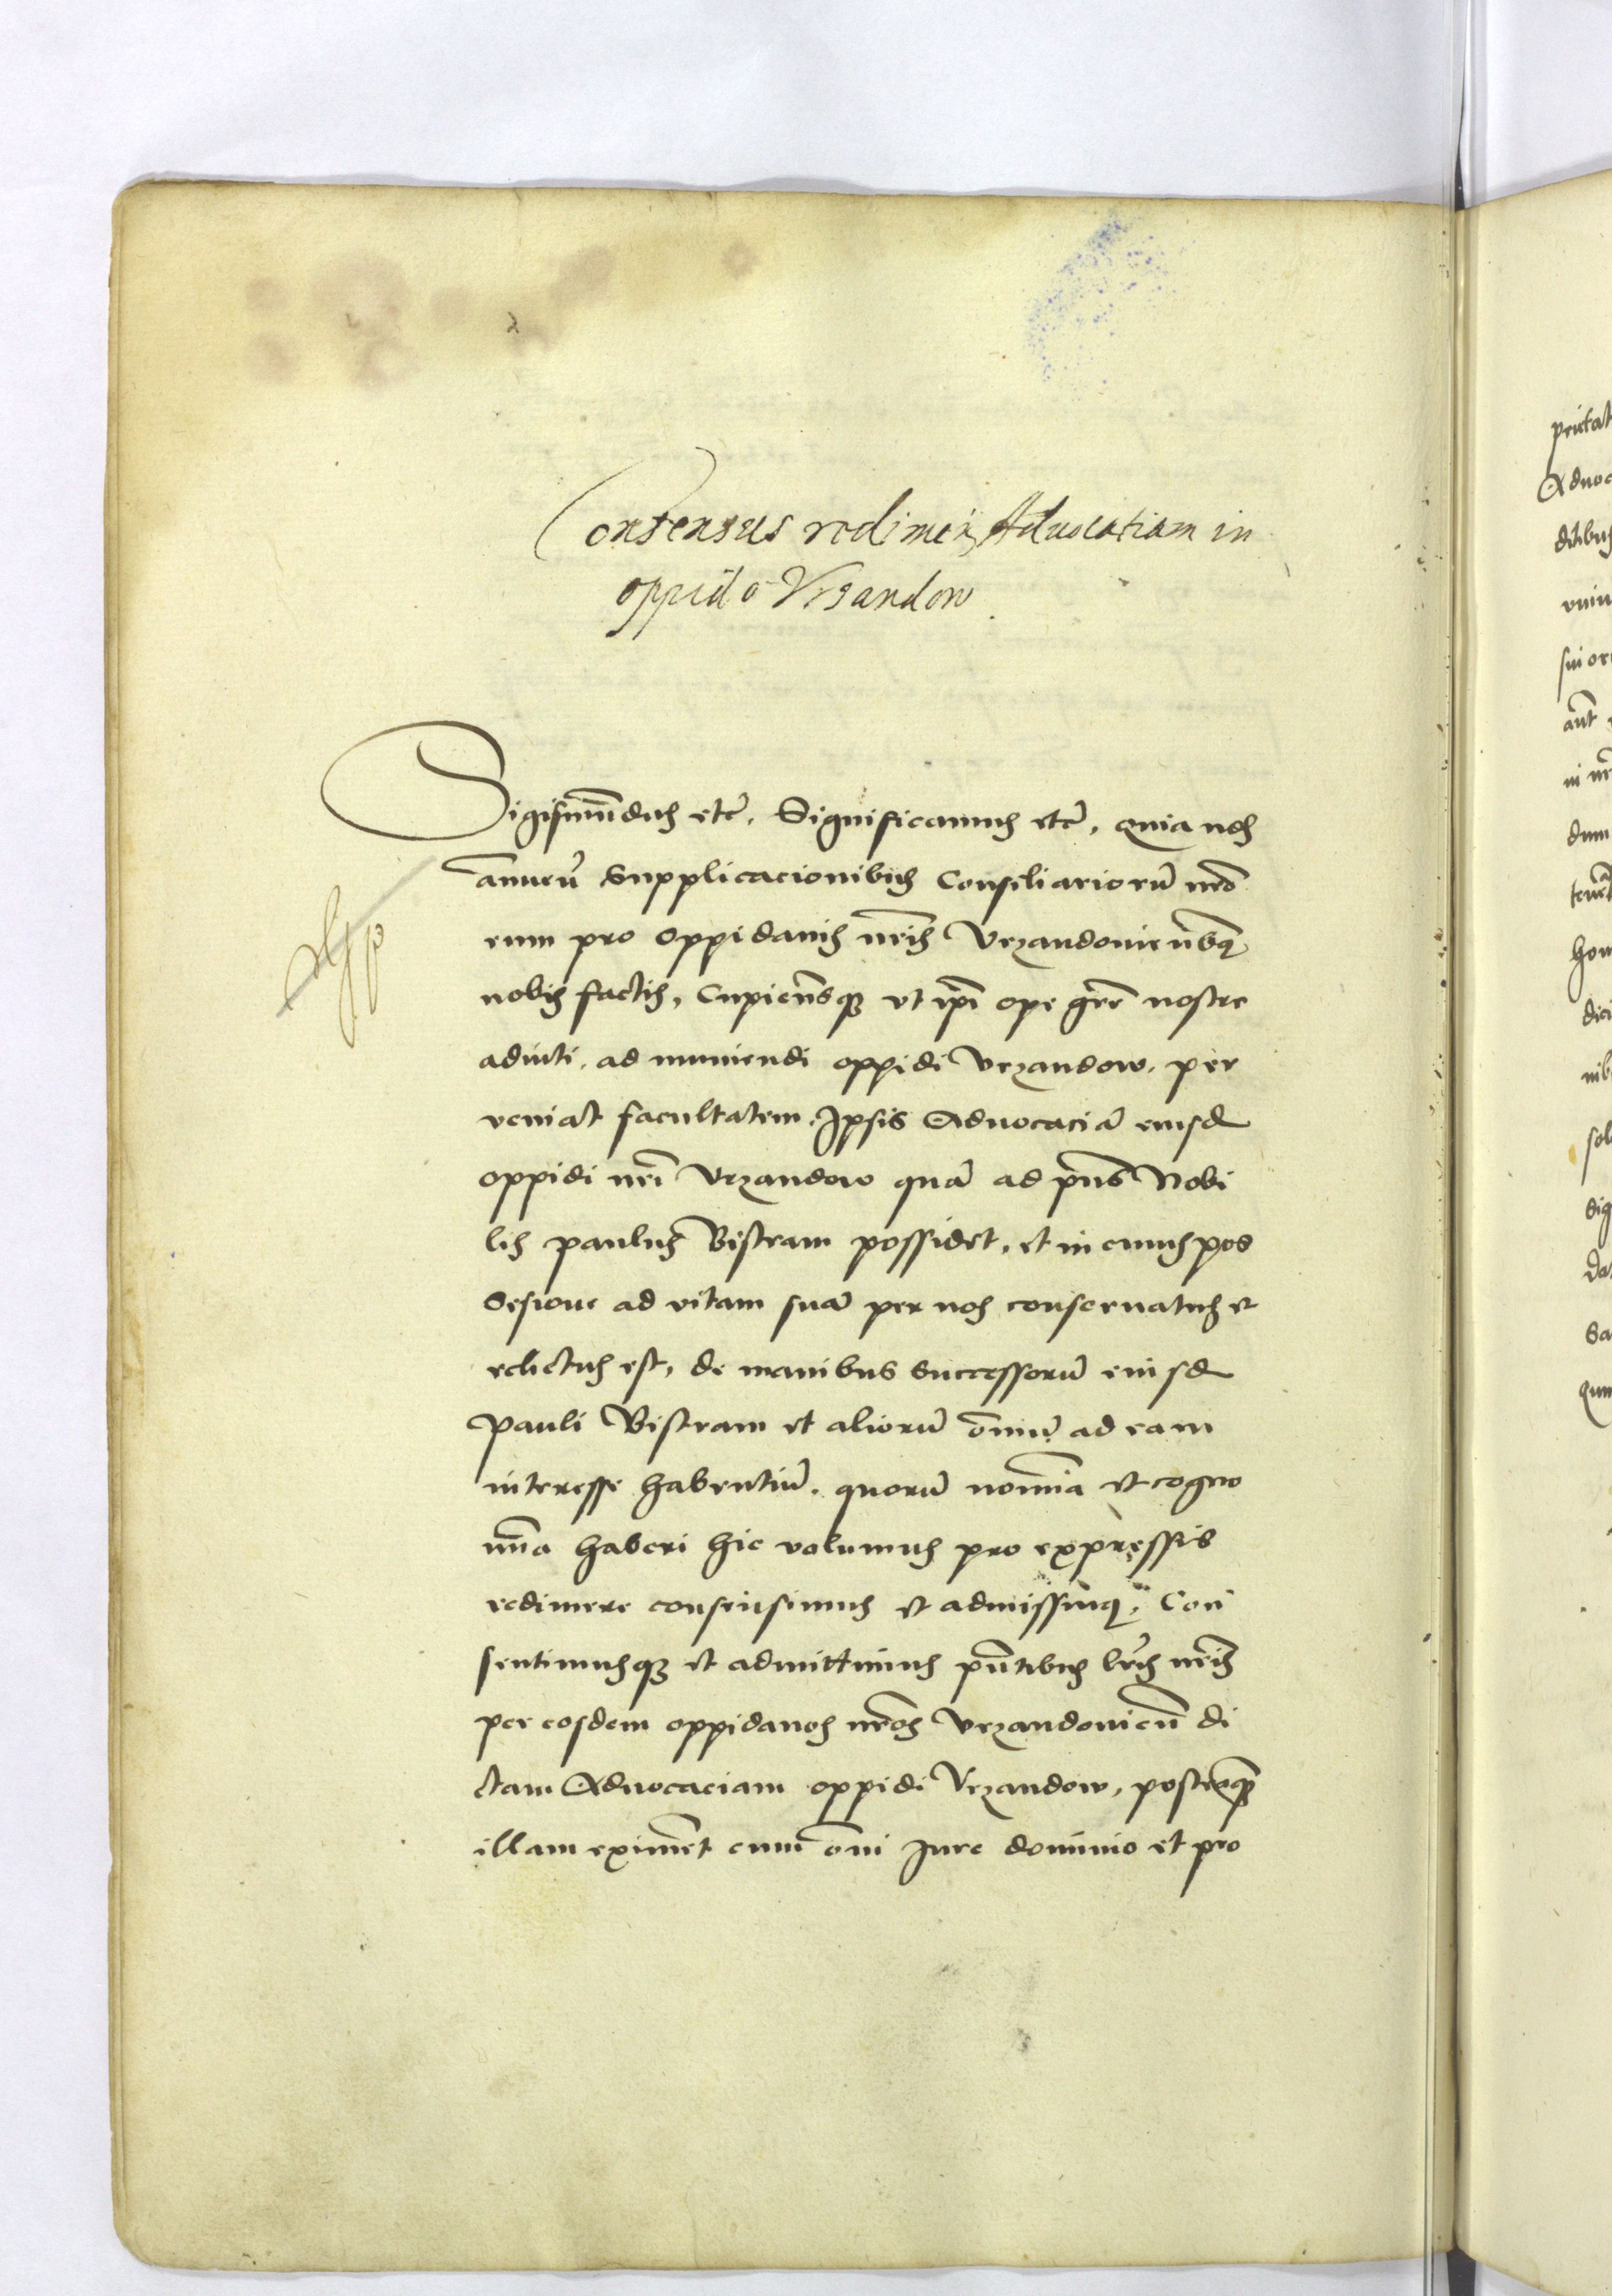 Consensus redimen Aduocatiam in
oppido Vrzandow
Sigismūdus etc̄, Significamus etc̄, quia nos
annueñ Supplicacionibus Consiliariorū nr̄o
rum pro Oppidanis nr̄is Vrzandovieñbq
nobis factis, Cupieñsqȝ vt ip̄i ope gr̄e nostre
adiuti, ad muniendi oppidi Vrzandow, per
veniāt facultatem, Ipsis Aduocaciā eiusd
oppidi nr̄i Vrzandow quā ad p̄ns Nobi
lis paulus Bistram possidet, et in cuius pos
sesione ad vitam suā per nos conseruatus et
relictus est, de manibus successorū eiusd
Pauli Bistram et aliorū om̄iū ad eam
interesse habentiū, quorū nomīa et cogno
mīa haberi hic volumus pro expressis
redimere consensimus et admissimq, Con
sentimusqȝ et admittimus pn̄tibus lr̄is nr̄is
per eosdem oppidanos nr̄os Vrzandovieñ di
ctam Aduocaciam oppidi Vrzandow, posteaqȝ
illam eximēt cum om̄i Iure dominio et pro